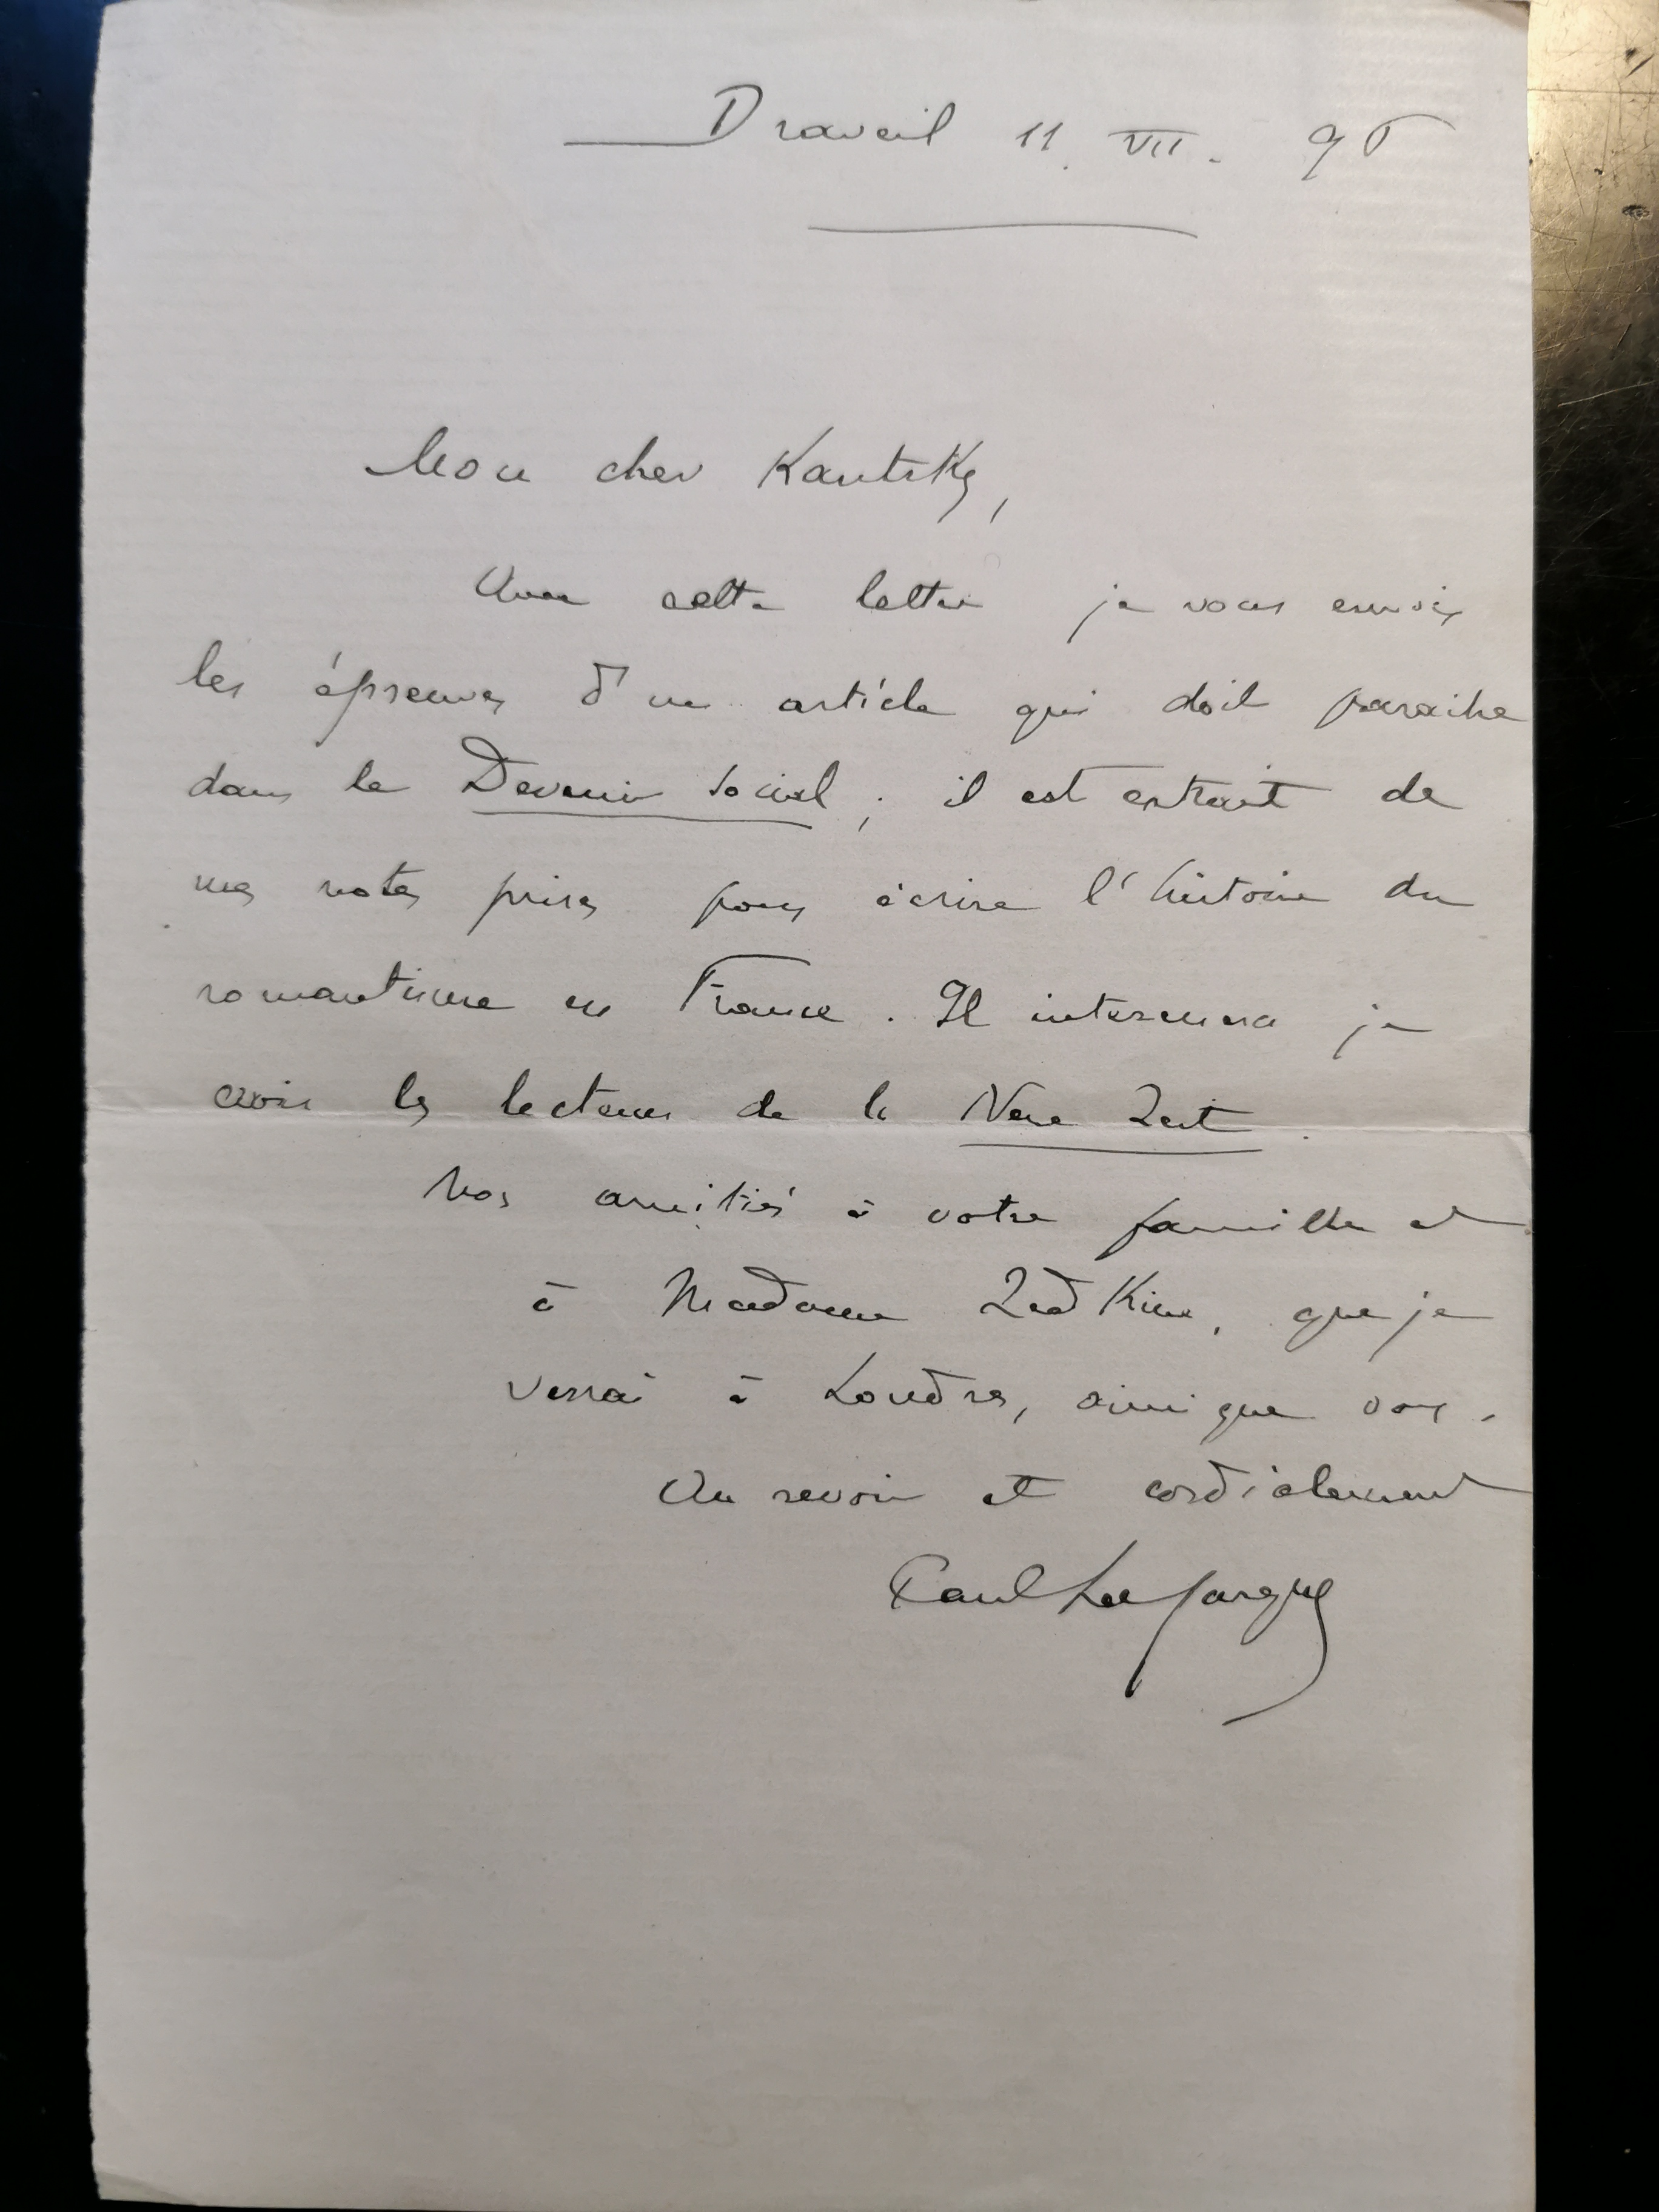 Draveil 11. VII. 96
Mon cher Kautsky,
Avec cette lettre je vous envoie
les épreuves d'un article qui doit paraitre
dans le Devenir Social ; il est extrait de
mes notes prises pour écrire l'histoire du
romantisme en France. Il interessera je
crois les lecteurs de la Neue Zeit.
Nos amitiés à votre famille et
à Madame Zedkine, que je
verrai à Londres, ainsi que vous.
Au revoir et cordialement
Paul Lafargue